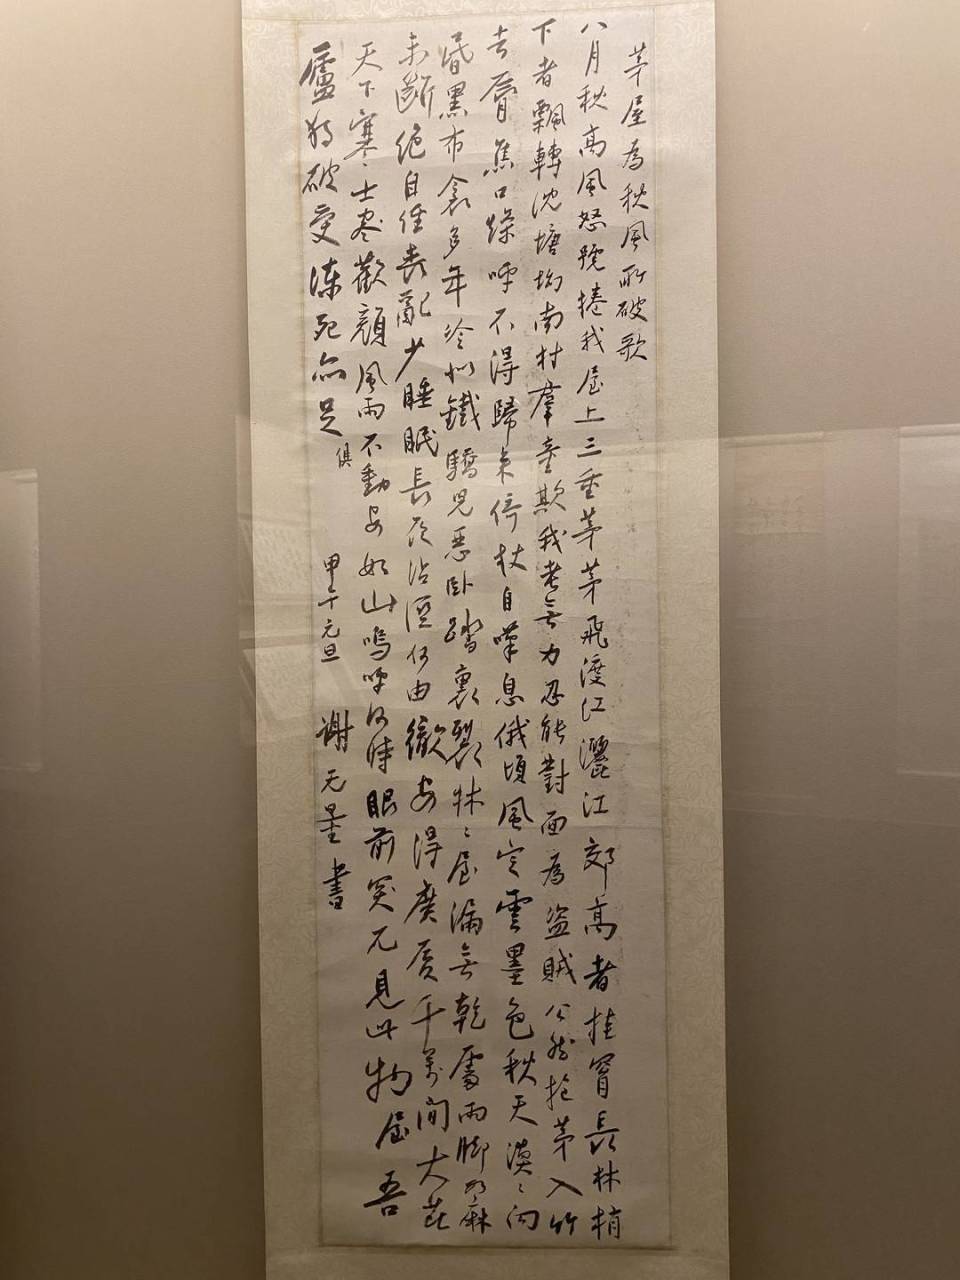 茅屋為秋風所破歌
八月秋高風怒號捲我屋上三重茅茅飛渡江灑江郊高者挂罥長林梢
下者飄轉沈塘坳南村羣童欺我老無力忍能對面為盜賊公然抱茅入竹
去脣焦口燥呼不得歸來倚杖自嘆息俄頃風定雲墨色秋天漠〻向
昏黑布衾多年冷似鐵驕兒惡臥踏裏裂牀〻屋漏無乾處雨腳如麻
未斷絕自經喪亂少睡眠長夜沾溼何由徹安得廣廈千萬間大庇
天下寒士盡歡顏風雨不動安如山嗚呼何時眼前突兀見此物屋吾
廬獨破受凍死亦足
俱
甲午元旦 謝无量書